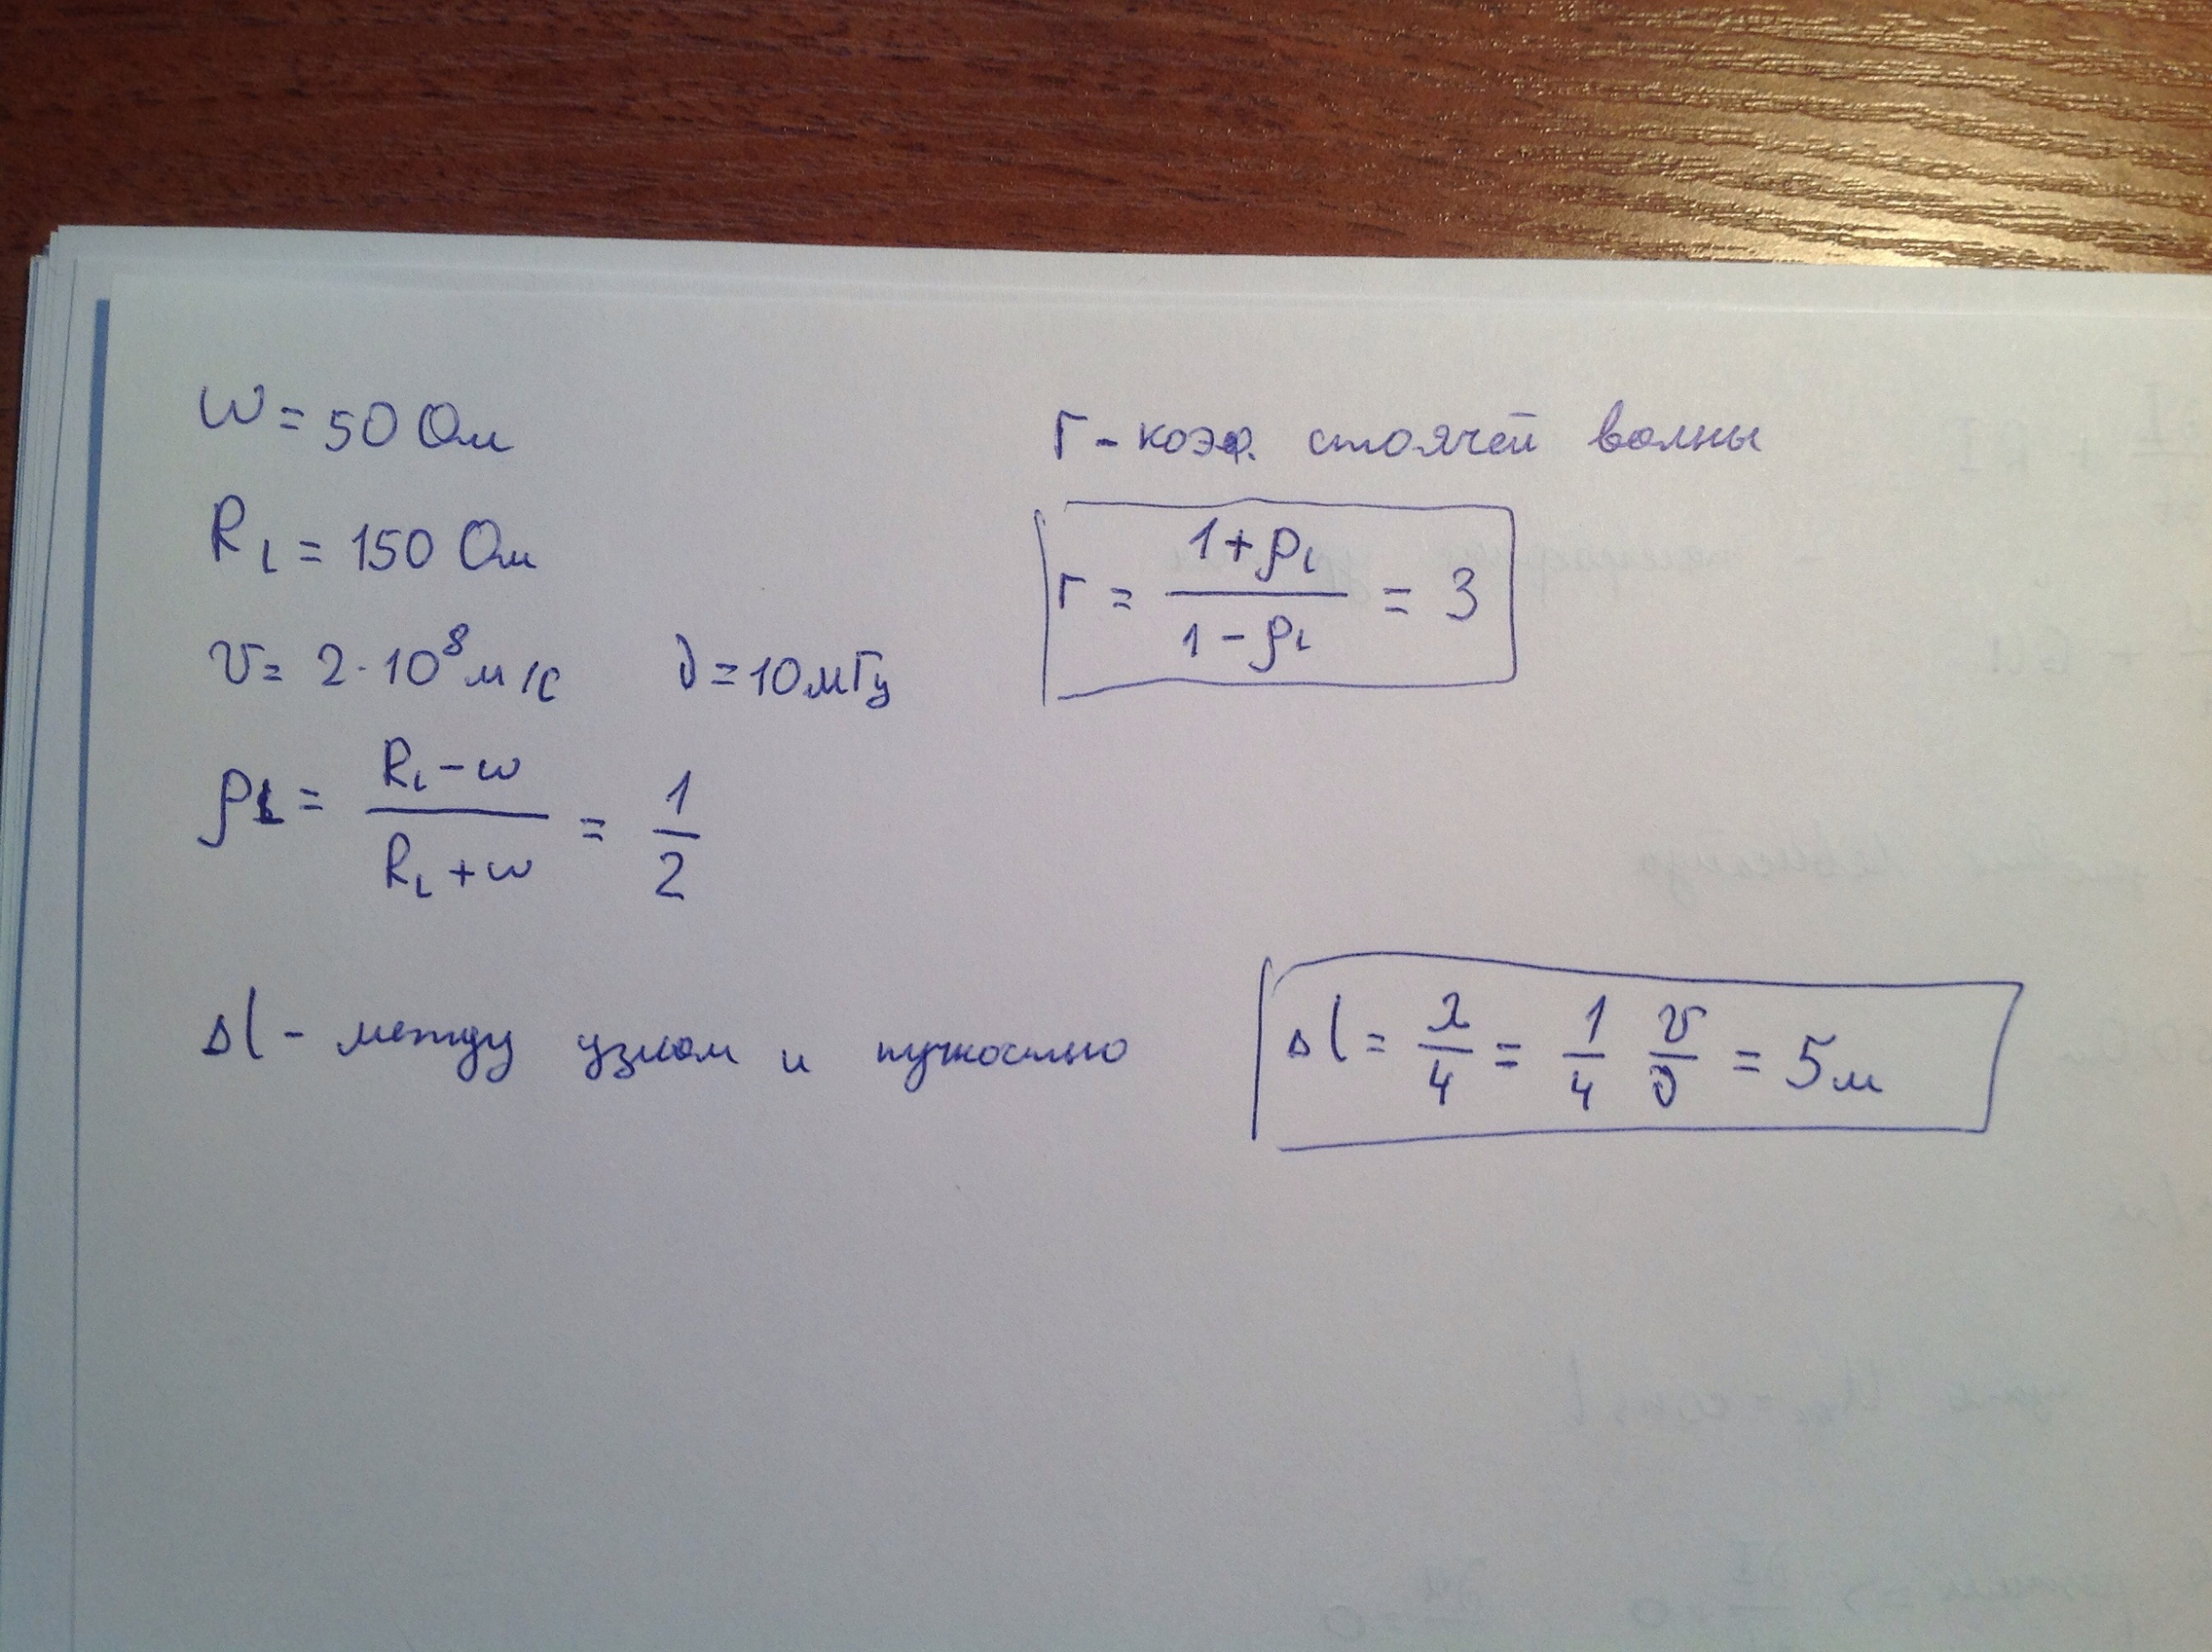 W = 50 Ом
R_L = 150 Ом
v = 2·10⁸ м/с ν = 10 мГц
ρ_L = (R_L - w)/(R_L + w) = 1/2
Г - коэф. стоячей волны
Г = (1 + ρ_L)/(1 - ρ_L) = 3
Δl - между узлом и пучностью
Δl = λ/4 = 1/4 v/ν = 5 м